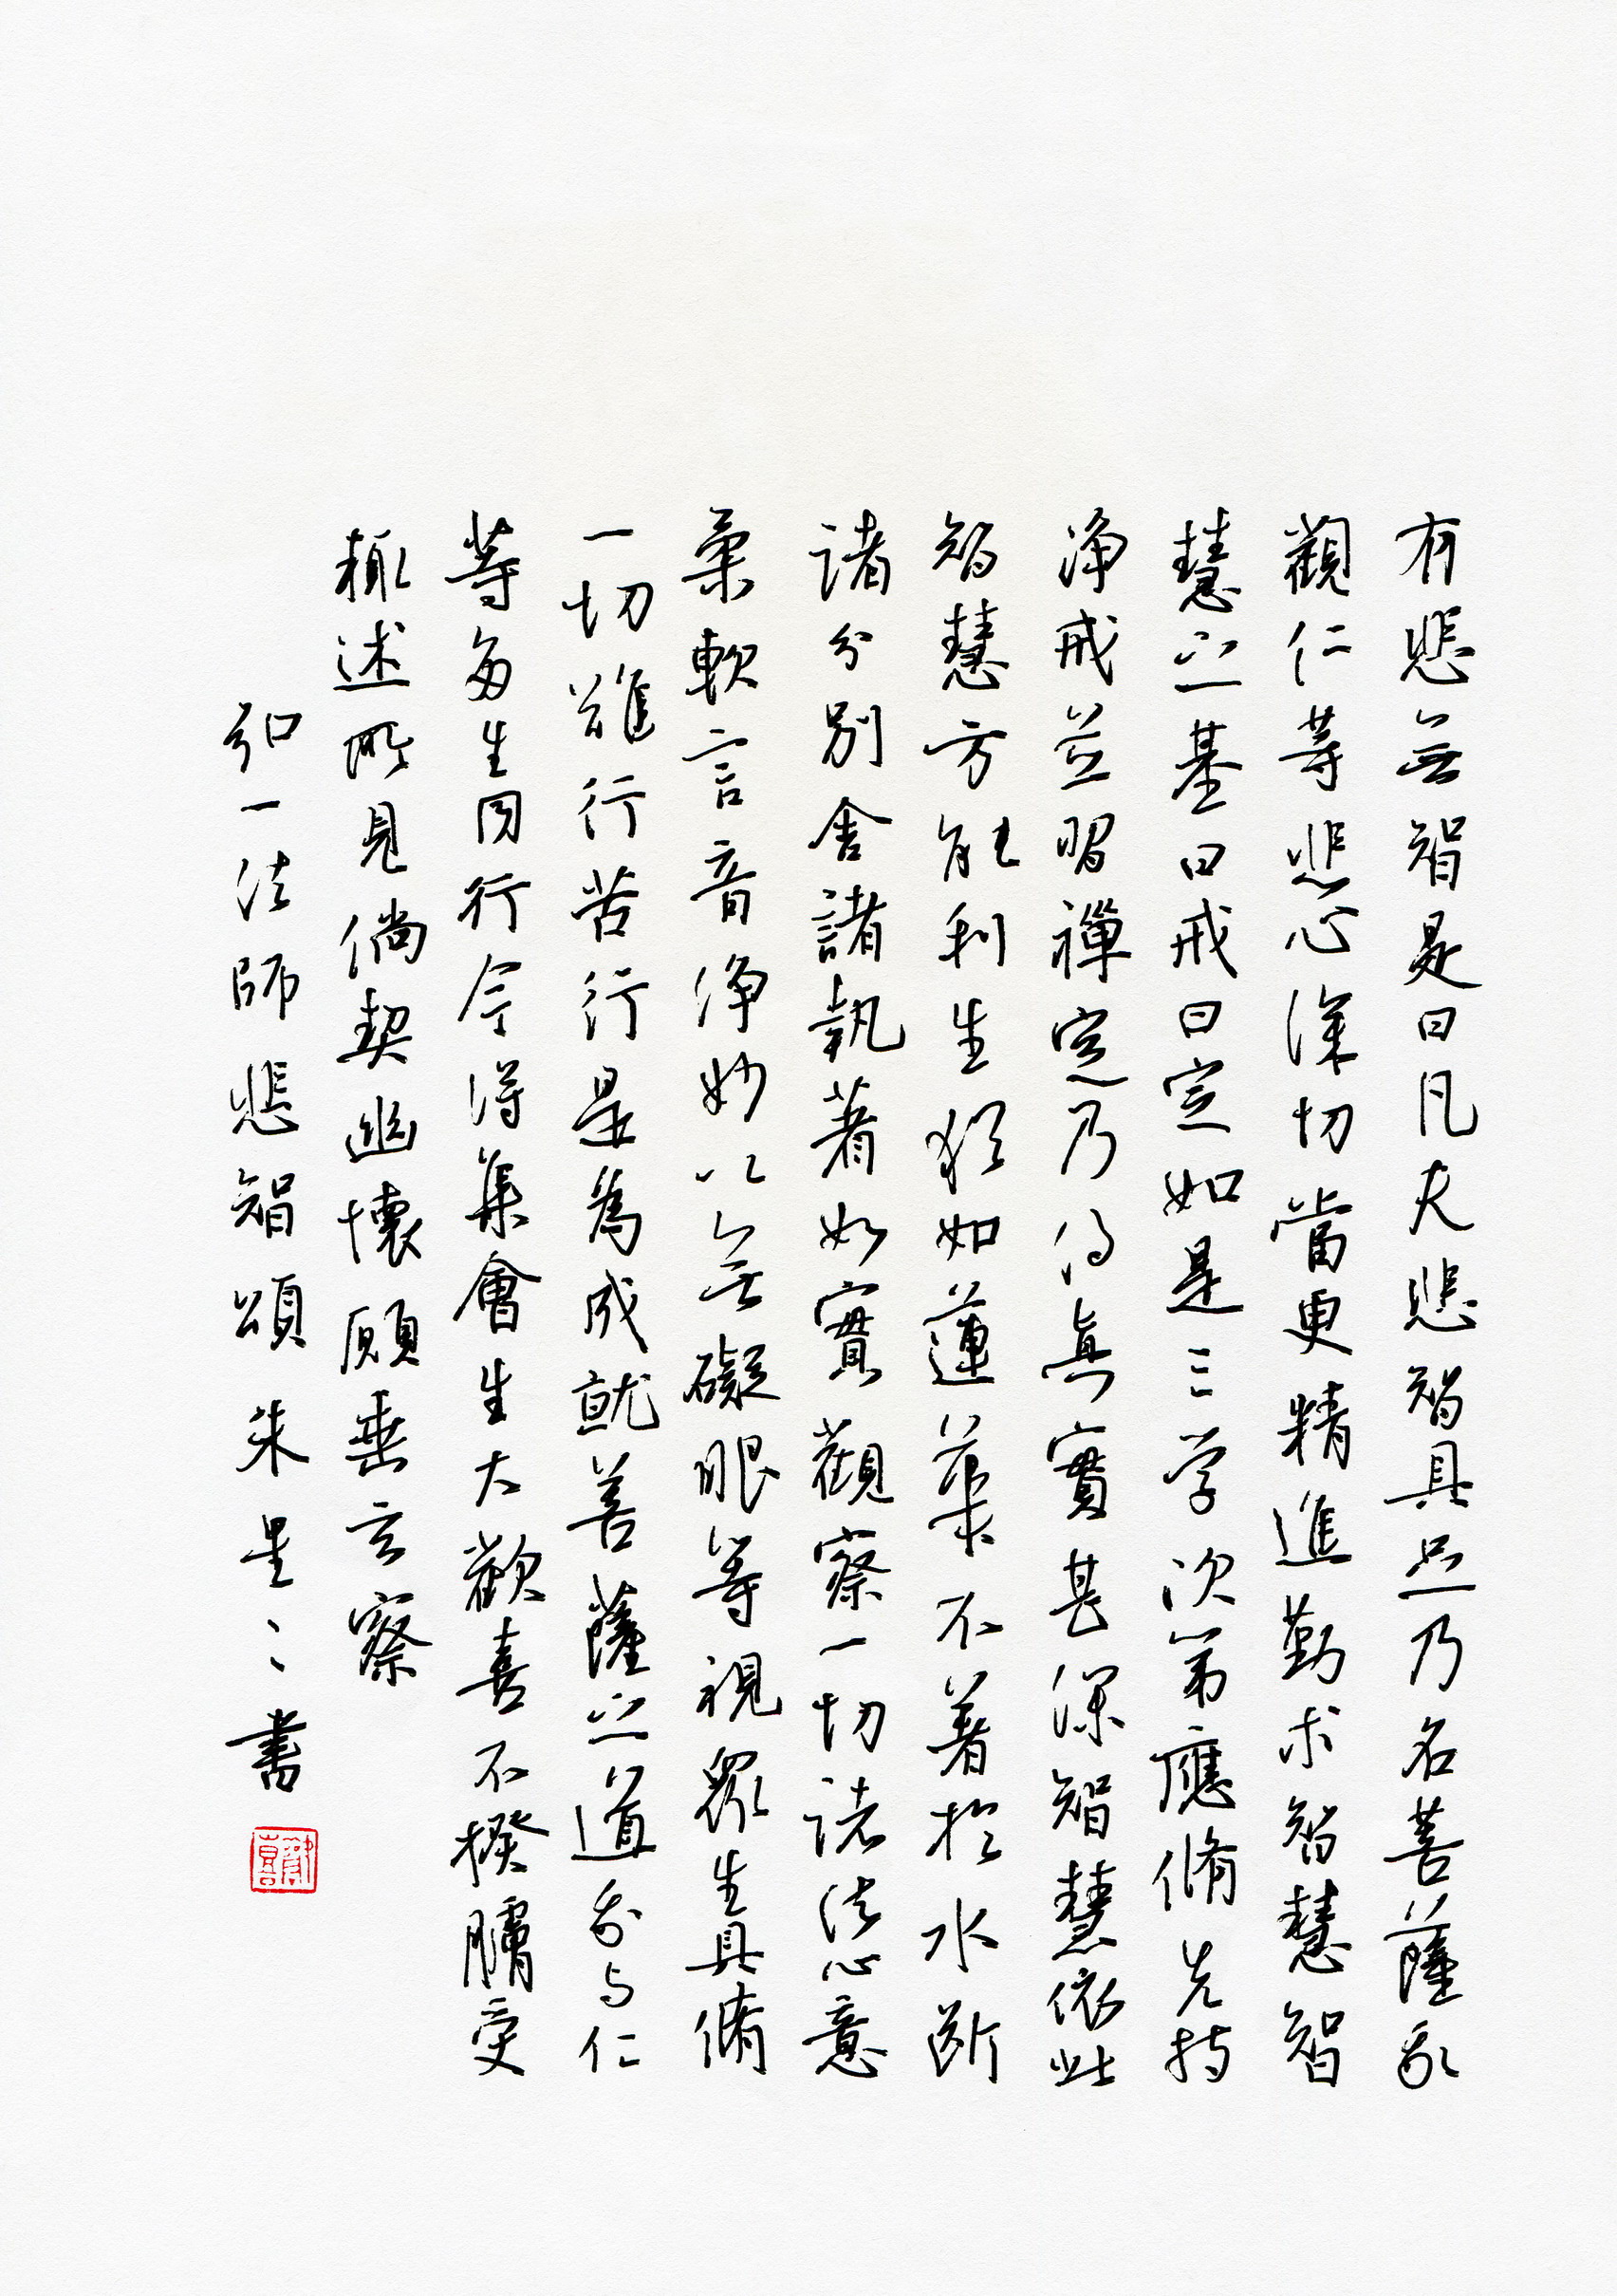 有悲無智是曰凡夫悲智具足乃名菩薩我
觀仁等悲心深切當更精進勤求智慧智
慧之基曰戒曰定如是三学次第應脩先持
淨戒並習禪定乃得真實甚深智慧依此
智慧方能利生猶如蓮華不著於水斷
諸分別舍諸執著如實觀察一切諸法心意
柔軟言音淨妙以無礙眼等視眾生具脩
一切難行苦行是為成就菩薩之道我与仁
等多生同行今得集會生大歡喜不揆膚受
輒述所見倘契幽懷願垂玄察
弘一法師悲智頌朱星〻書